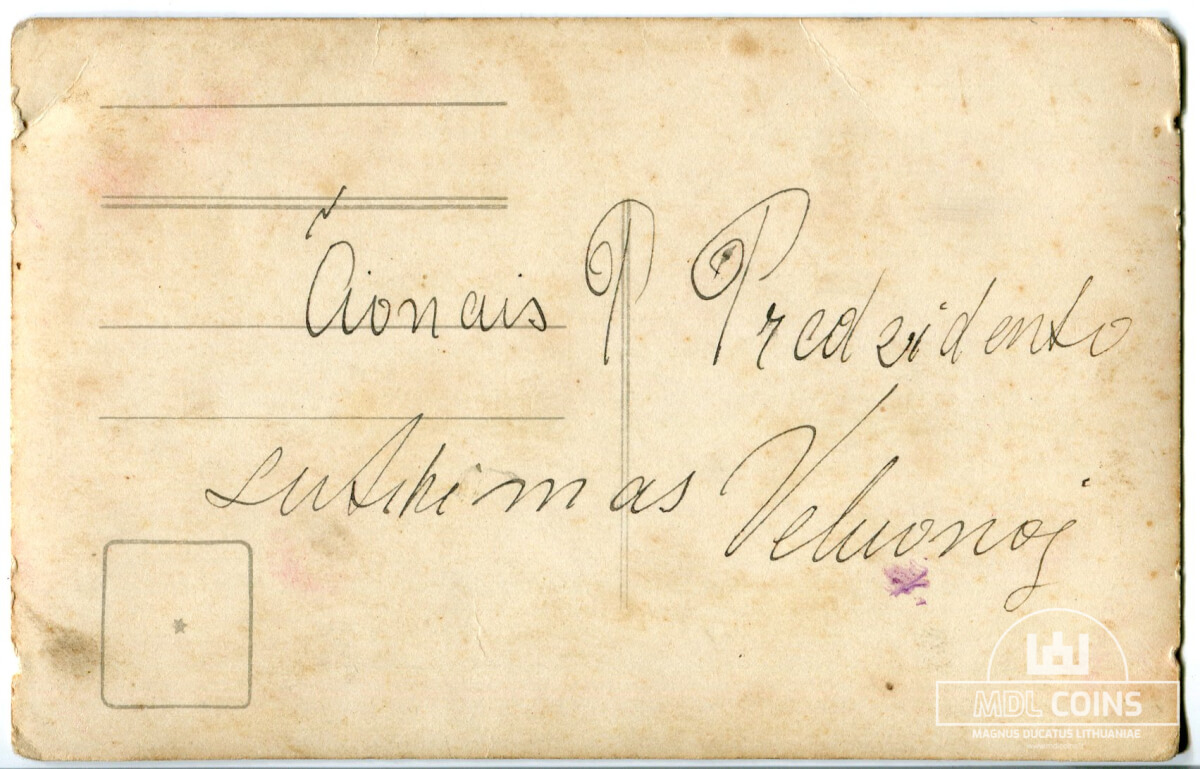 Čionais P Predzidento
sutikimas Veluonoj
MDL COINS
MAGNUS DUCATUS LITHUANIAE